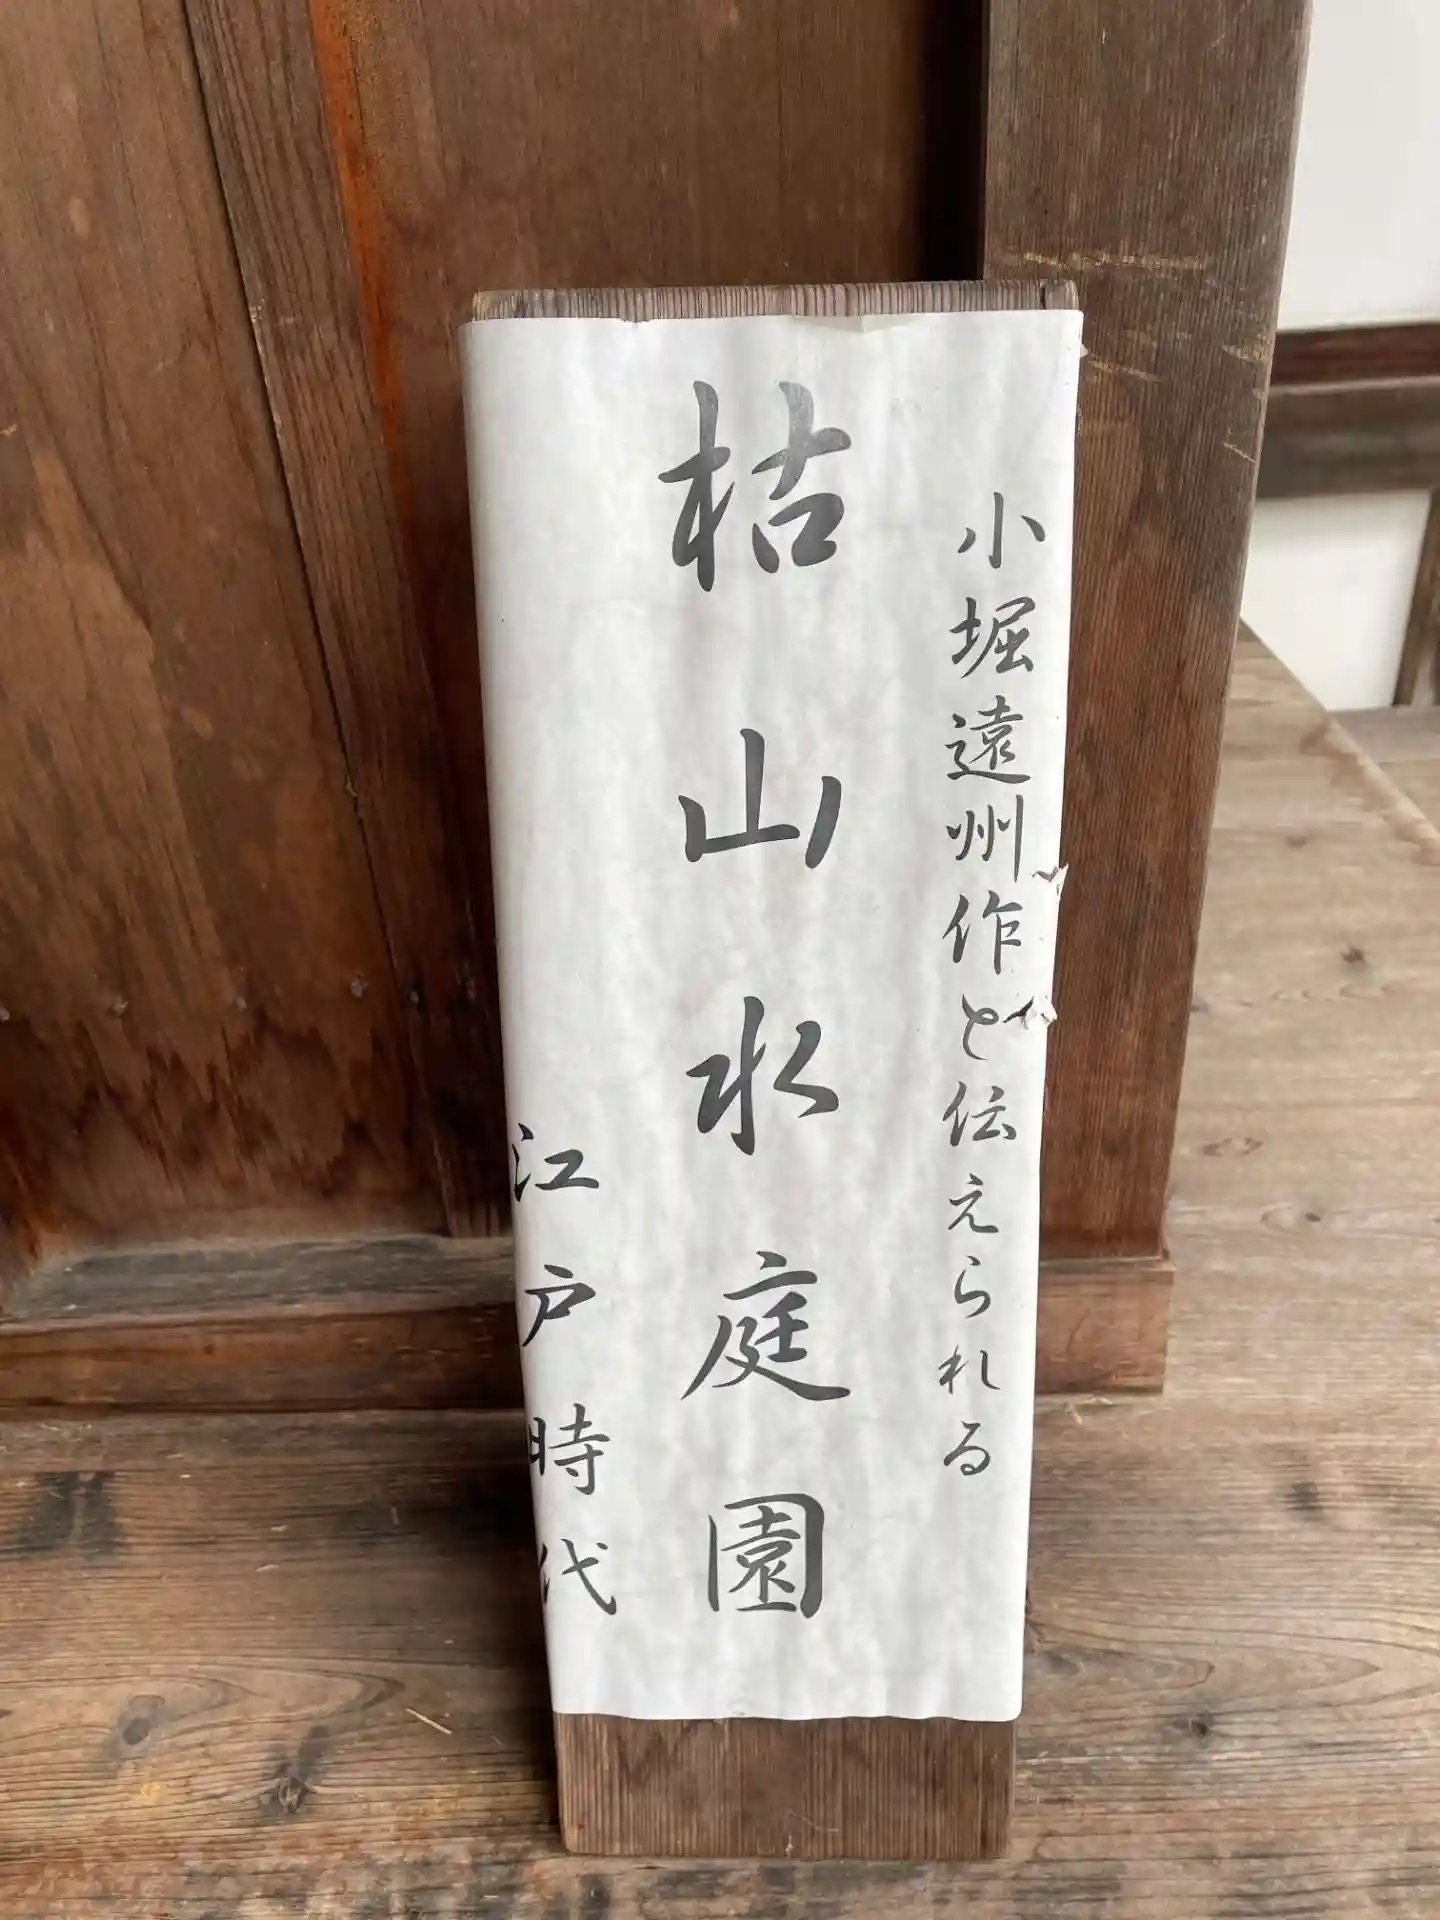 小堀遠州作と伝えられる
枯山水庭園
江戸時代